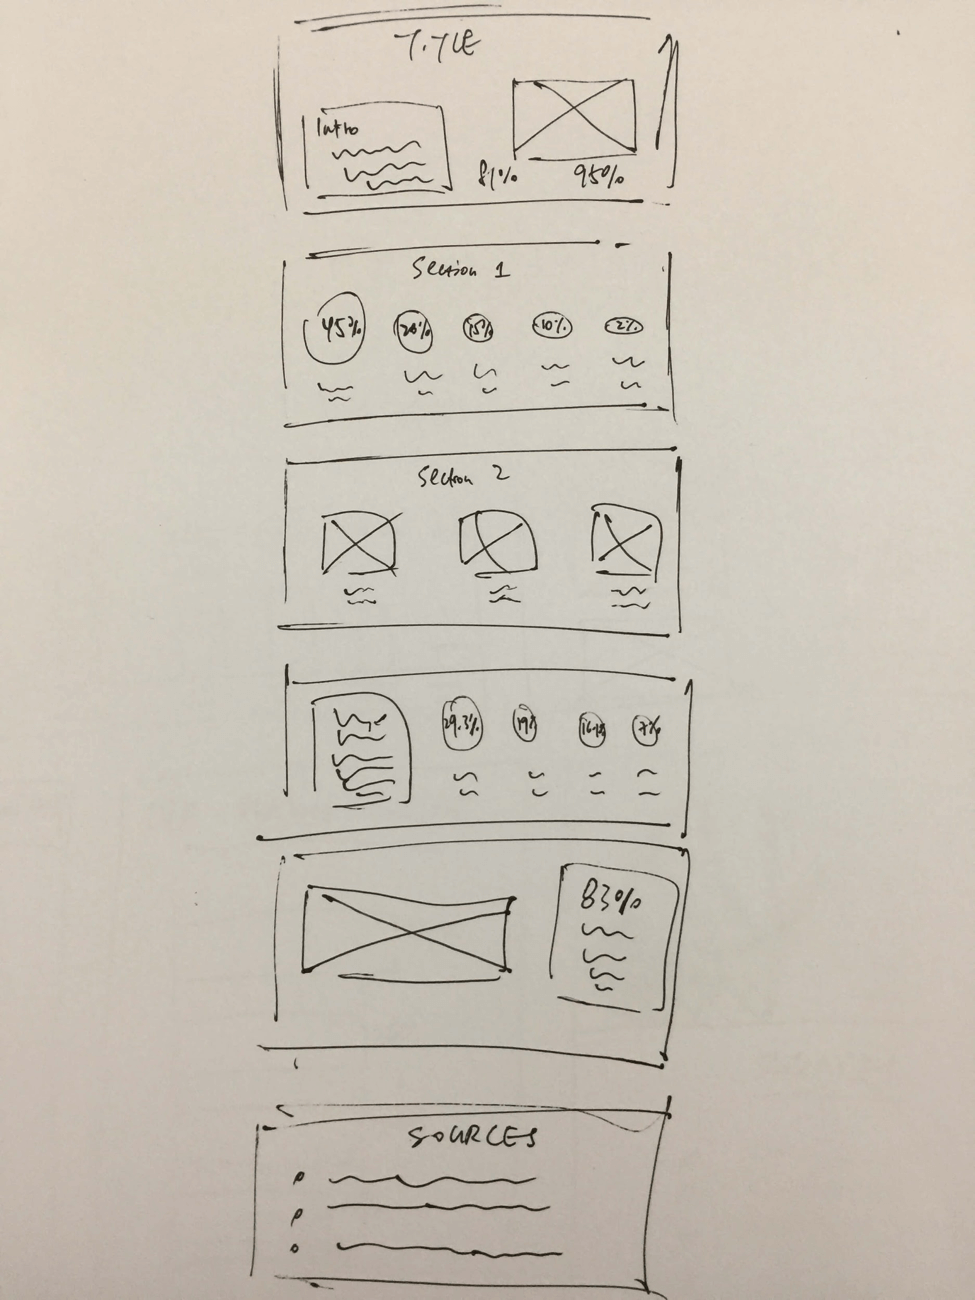 TITLE
Intro
81% 95%
Section 1
45% 20% 15% 10% 2%
Section 2
29.3% 19% 7%
83%
SOURCES